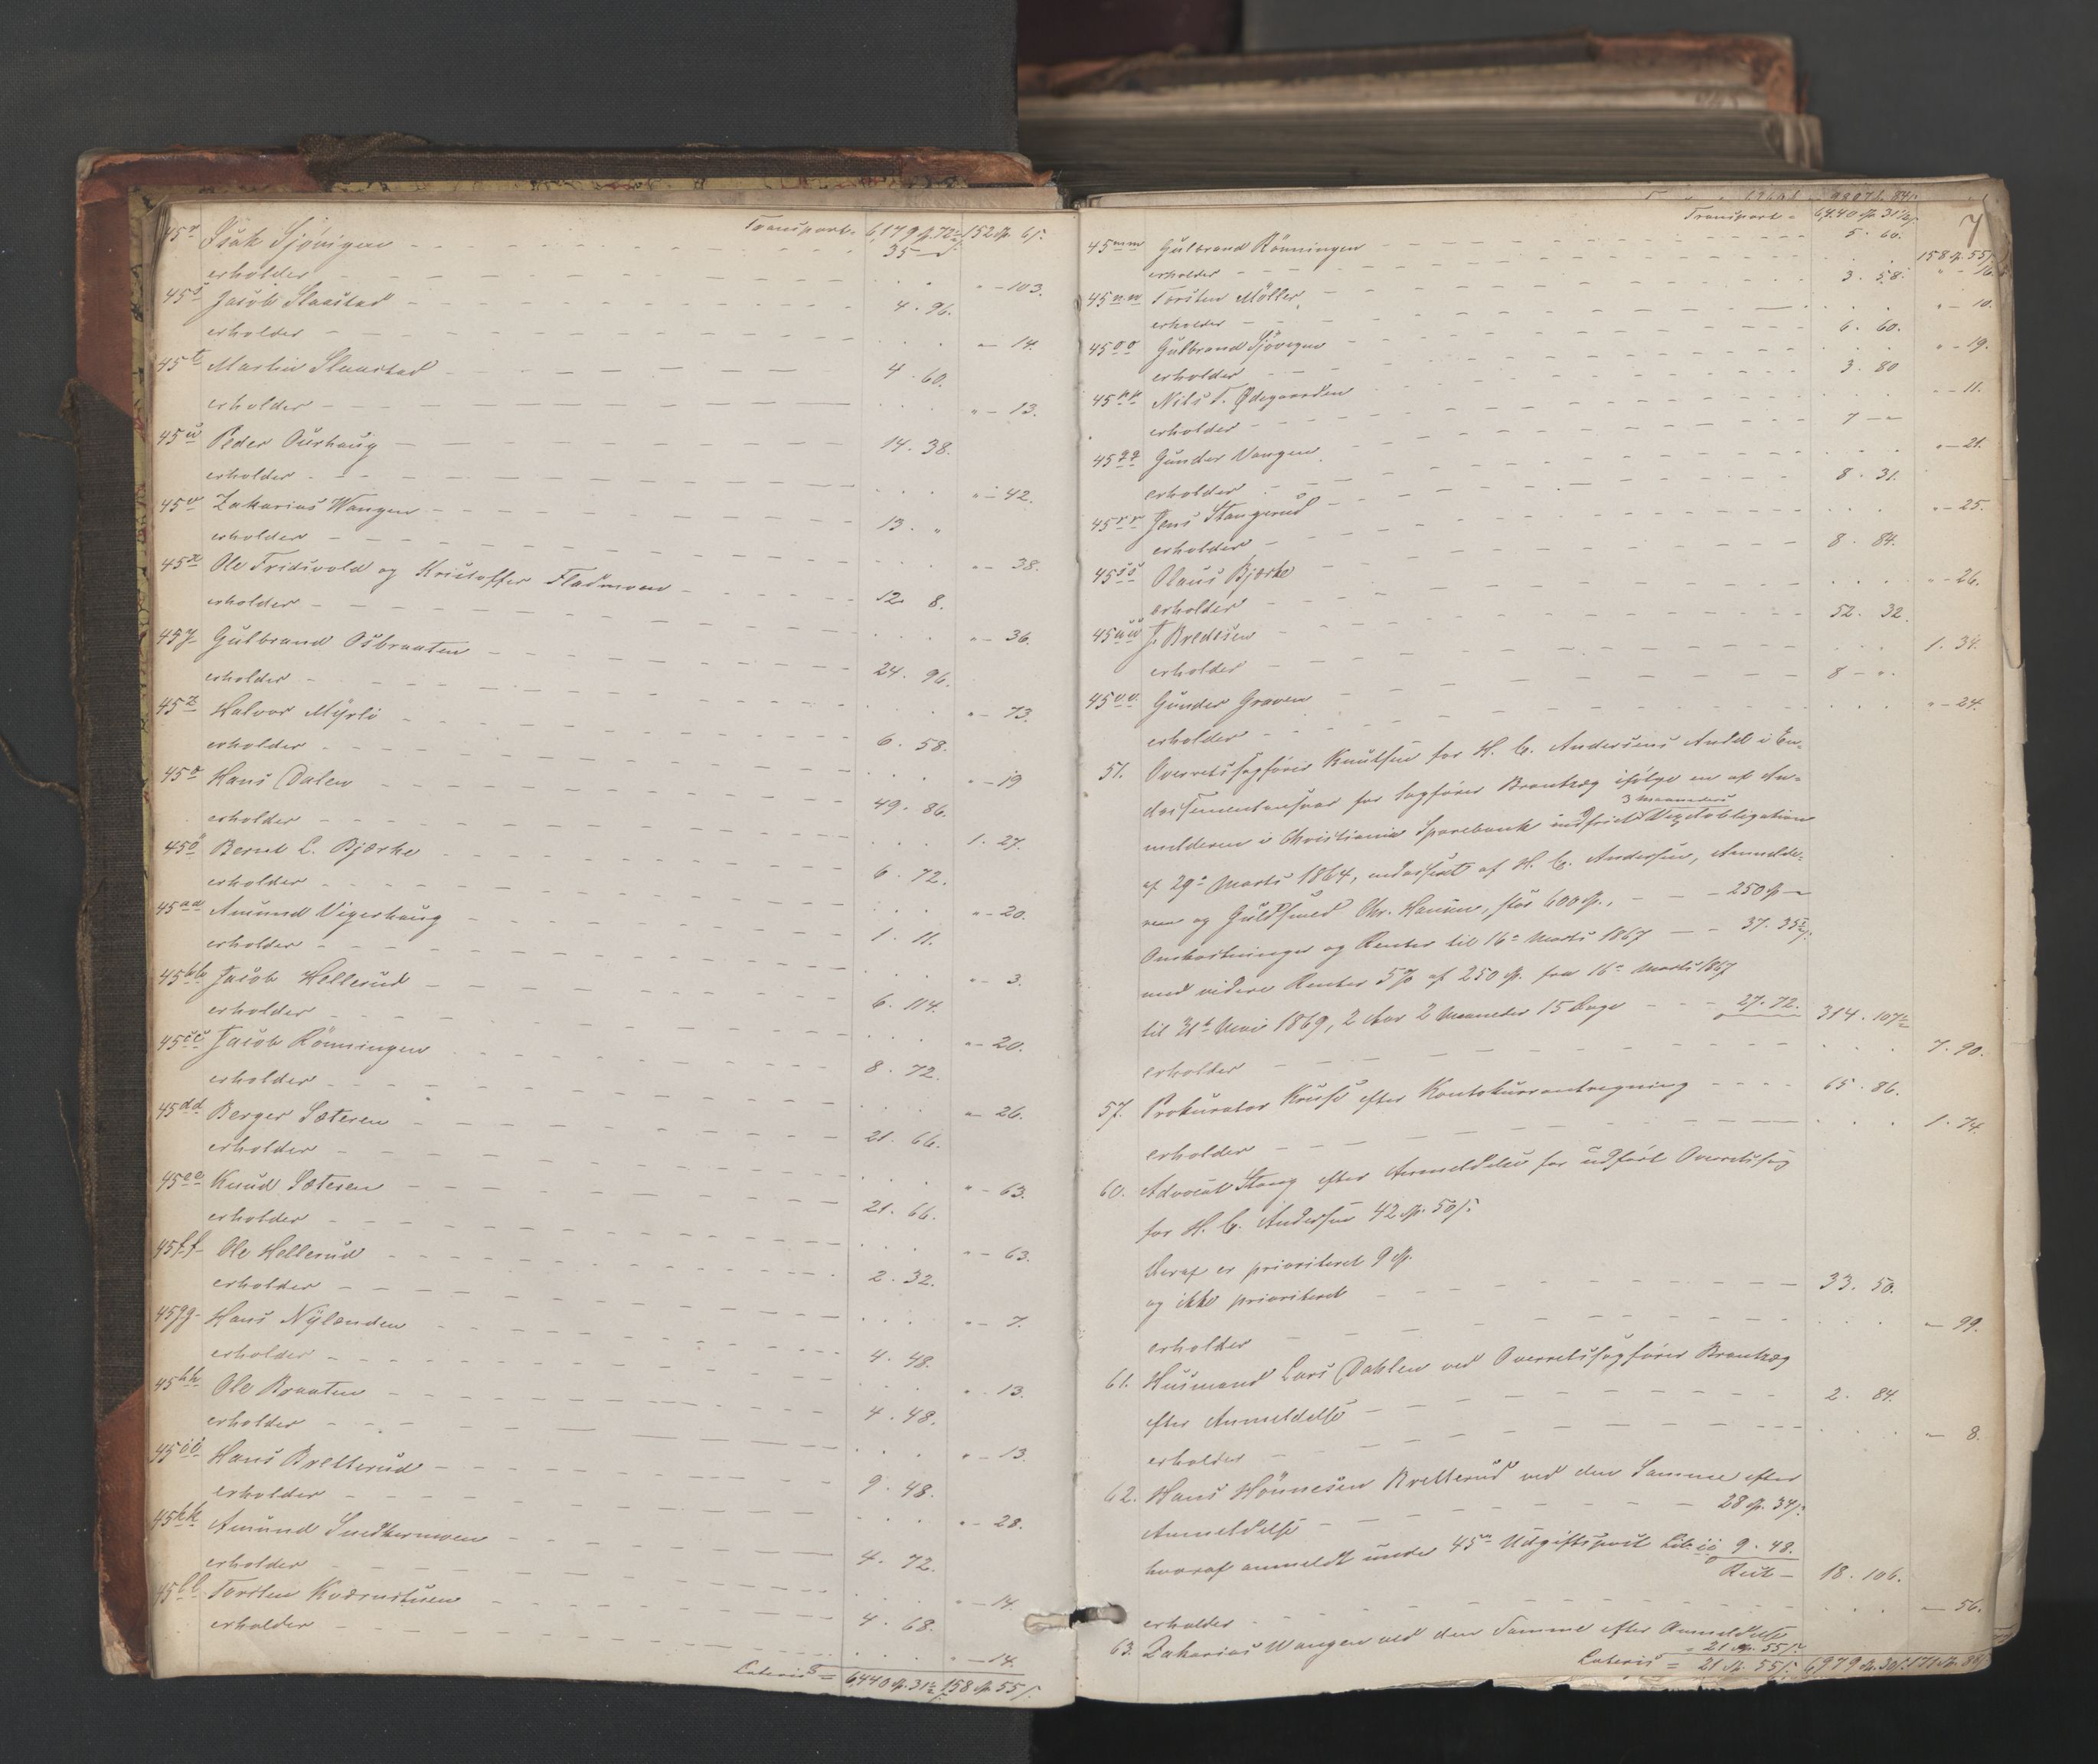 Transport = 6,179 sp. 72½ s. 152 sp. 6 s.
45r Isak Sjövigen - - - 35 - "
erholder - - - " - 103.
45s Jacob Slaastad - - - 4 . 96.
erholder - - - " - 14.
45t Martin Slaastad - - - 4 . 60.
erholder - - - " - 13.
45u Peder Aurhaug - - - 14 . 38.
erholder - - - " - 42.
45v Zakarias Wangen - - - 13 . "
erholder - - - " - 38.
45x Ole Fridsvold og Kristoffer Fladmoen - - - 12 . 8.
erholder - - - " - 36.
45y Gulbrand Osbraaten - - - 24 . 96.
erholder - - - " - 73.
45z Halvor Myrli - - - 6 . 58.
erholder - - - " - 19
45æ Hans Dalen - - - 49 . 86.
erholder - - - 1 . 27.
45ö Bernt L. Bjørke - - - 6 . 72.
erholder - - - " - 20.
45aa Amund Vigerhaug - - - 1 . 11.
erholder - - - " - 3.
45bb Jacob Hellerud - - - 6 . 114.
erholder - - - " - 20.
45cc Jacob Rönningen - - - 8 . 72.
erholder - - - " - 26.
45dd Berger Sæteren - - - 21 . 66.
erholder - - - " - 63.
45ee Knud Sæteren - - - 21 . 66.
erholder - - - " - 63.
45ff Ole Hellerud - - - 2 . 32.
erholder - - - " - 7.
45gg Hans Nylænden - - - 4 . 48.
erholder - - - " - 13.
45hh Ole Braaten - - - 4 . 48.
erholder - - - " - 13.
45ii Hans Bretterud - - - 9 . 48.
erholder - - - " - 28.
45kk Amund Smedhermoen - - - 4 . 72.
erholder - - - " - 14.
45ll Torsten Kværnstuen - - - 4 . 68.
erholder - - - " - 14.
Lateris = 6440 sp. 31½ s. 158 sp. 55 s.
7
Transport = 6,440 sp. 31½ s. 158 sp. 55 s.
45mm Gulbrand Rönningen - - - 5 . 60.
erholder - - - " - 16.
45nn Torsten Möller - - - 3 . 58.
erholder - - - " - 10.
45oo Gulbrand Sjövigen - - - 6 . 60.
erholder - - - " - 19.
45pp Nils T. Ødegaarden - - - 3 . 80
erholder - - - " - 11.
45qq Gunder Vangen - - - 7 - "
erholder - - - " - 21.
45rr Jens Stangerud - - - 8 . 31.
erholder - - - " - 25.
45ss Olaus Bjørke - - - 8 . 84.
erholder - - - " - 26.
45uu J. Bredesen - - - 52 . 32.
erholder - - - 1 . 34.
45vv Gunder Graven - - - 8 - ".
erholder - - - " - 24.
51. Overretssagfører Knutsen for H. C. Andersens Andel i En-
dossementansvar for Sagfører Brantzæg ifølge en af An-
melderen i Christiania Sparebank indfriet 3 Maaneders Vexelobligation
af 29de Marts 1864, endosseret af H. C. Andersen, Anmelde-
ren og Guldsmed Chr. Hansen, stor 600 sp., - - 250 sp -
Omkostninger og Renter til 16de Marts 1867 - - 37 . 35½ s.
med videre Renter 5 % af 250 sp. fra 16de Marts 1867
til 31te Mai 1869, 2 Aar 2 Maaneder 15 Dage - - - 27 . 72. 314 . 107½
erholder - - - 7 . 90.
57. Prokurator Kruse efter Kontokurantregning - - - - 65 . 86.
erholder - - - 1 . 74.
60. Advocat Stang efter Anmeldelse for udført Overretssag
for H. C. Andersen 42 sp. 50 s.
Heraf er prioriteret 9 sp.
og ikke prioriteret - - - 33 . 50.
erholder - - - " - 99.
61. Husmand Lars Dahlen ved Overretssagfører Brantzæg
efter Anmeldelse - - - 2 . 84.
erholder - - - " - 8.
62. Hans Hönnesen Bretterud ved den Samme efter
Anmeldelse - - - 28 sp. 34 s.
hvoraf anmeldt under 45de Udgiftspost Lit. ii 9 . 48.
Rest - 18 . 106.
erholder - - - " - 56.
63. Zakarias Wangen ved den Samme efter Anmeldelse
= 21 sp. 55 s.
Lateris = 21 sp. 55 s. 6,979 sp. 30 s. 171 sp. 86 s.